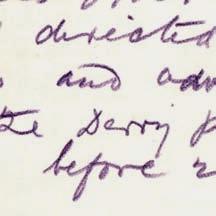 directed
and adv
the Derry
before